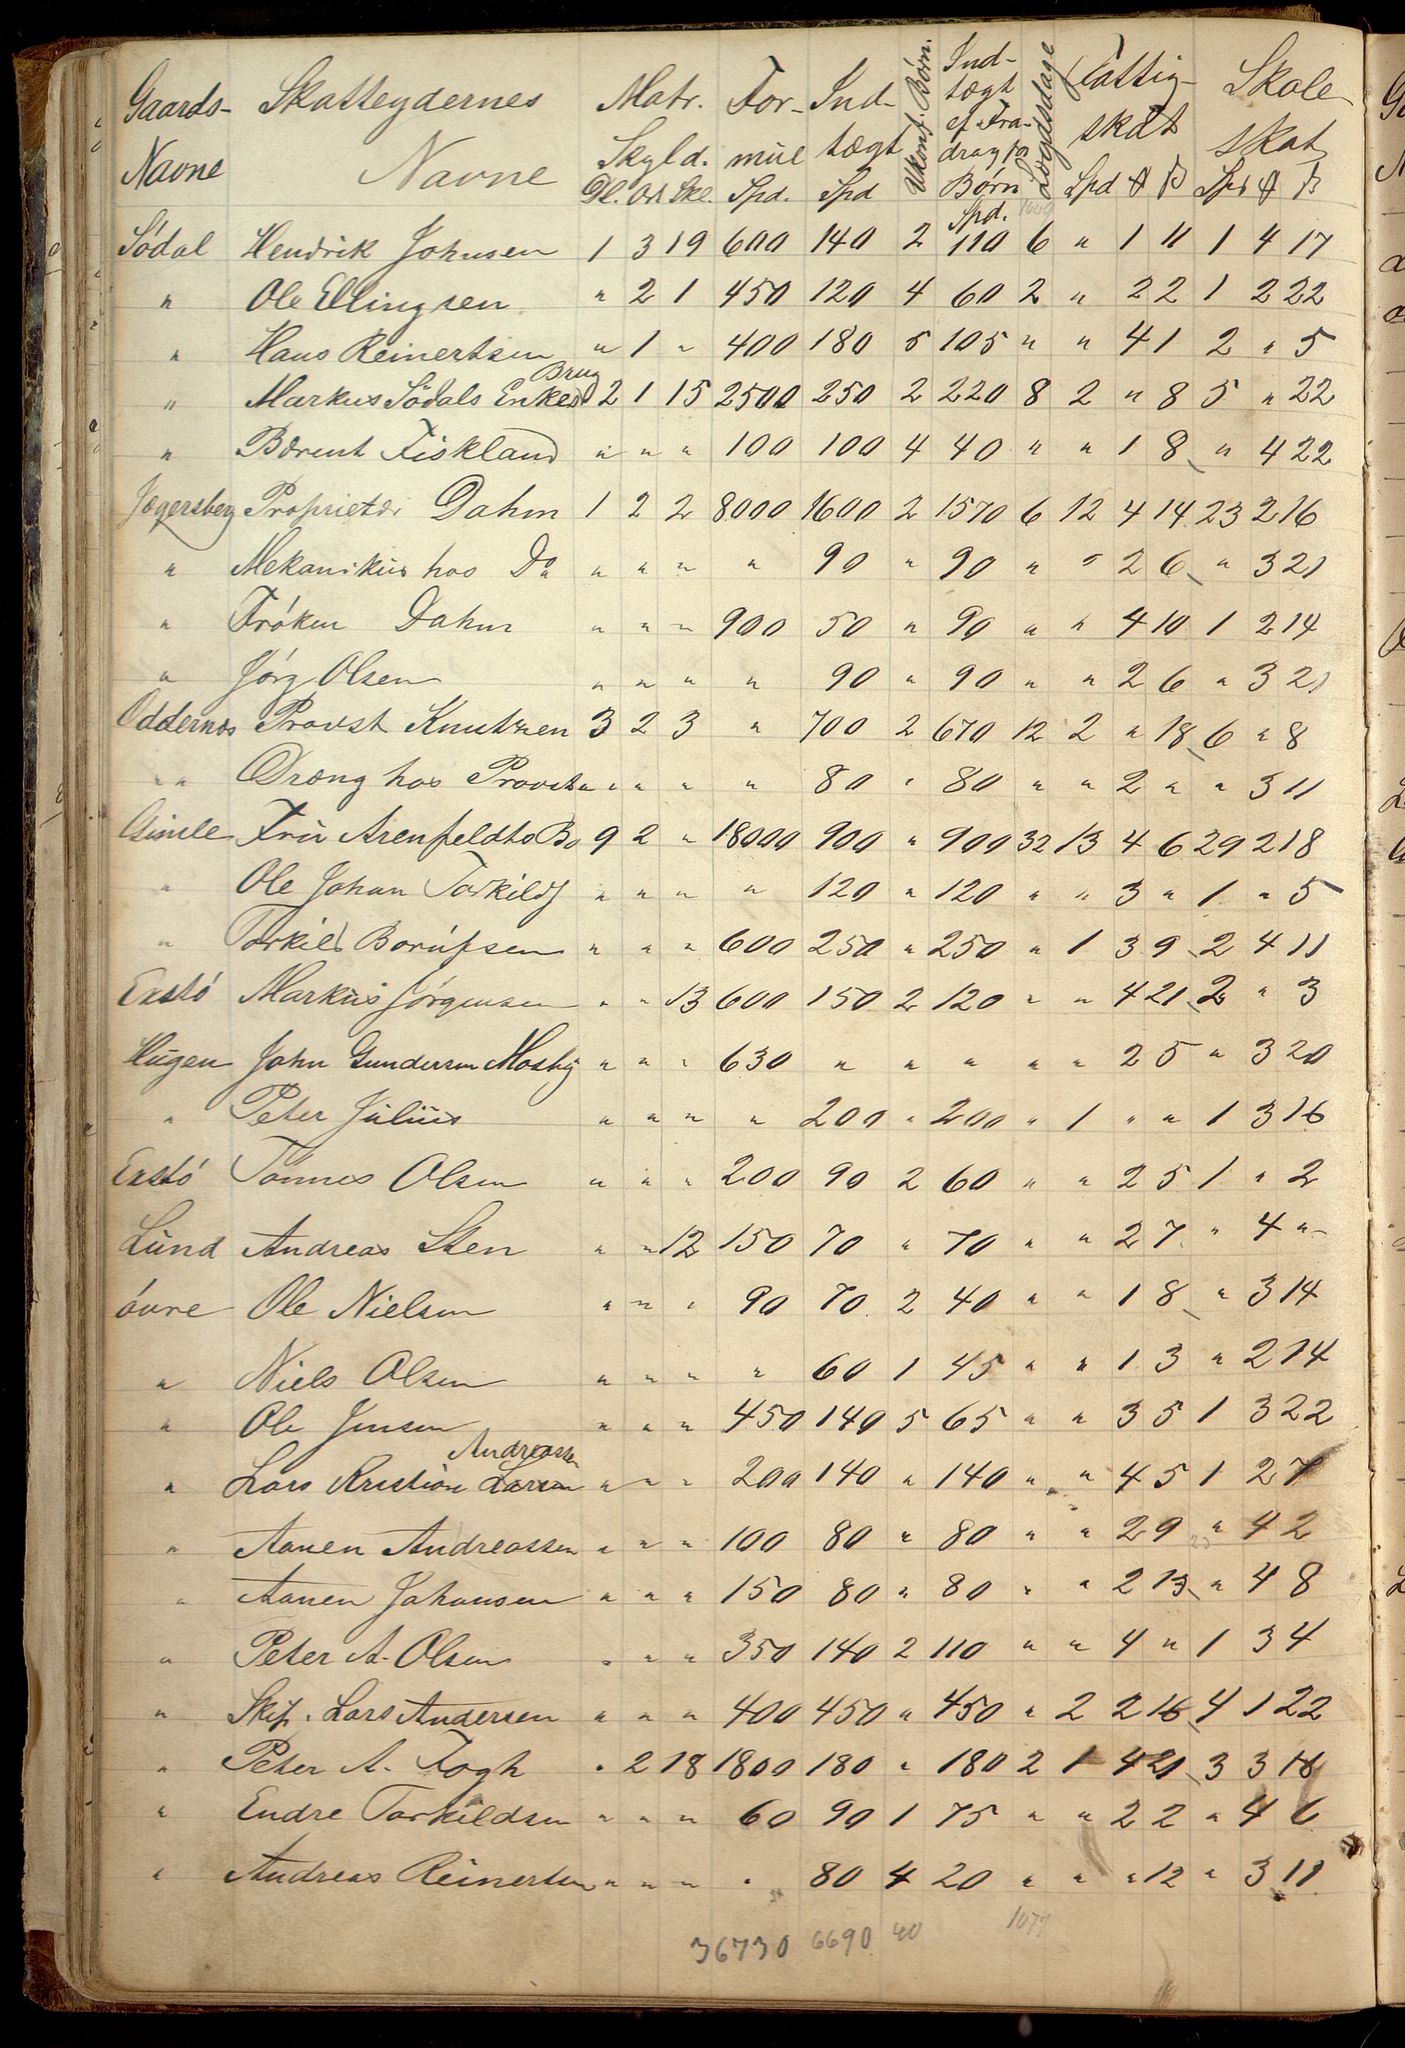 Gaards- Navne | Skatteydernes Navne | Matr. Skyld. Dl. Ort Skl. | For- mue Spd. | Ind- tægt Spd | Ukonf. Børn. | Ind- tægt ef. Fra- drag for Børn Spd. | Lægdsdage | Fattig- skat Spd | Skole- skat Spd
Södal Hendrik Johnsen 1 3 19 600 140 2 110 6 " 1 11 1 4 17
" Ole Ellingsen " 2 1 450 120 4 60 2 " 2 2 1 2 22
" Hans Reinertsen " 1 " 400 180 5 105 " " 4 1 2 " 5
" Markus Södals Enkes Brug 2 1 15 2500 250 2 220 8 2 " 8 5 " 22
" Bærent Fiskland " " " 100 100 4 40 " " 1 8 " 4 22
Jægersberg Proprietær Dahm 1 2 2 8000 1600 2 1570 6 12 4 14 23 2 16
" Mekanikus hos Do " " " " 90 " 90 " " 2 6 " 3 21
" Fröken Dahm " " " 900 50 " 90 " " 4 10 1 2 14
" Jörg Olsen " " " " 90 " 90 " " 2 6 " 3 21
Oddernæs Provst Knutzen 3 2 3 " 700 2 670 12 2 " 18 6 " 8
" " Dræng hos Provsten " " " " 80 " 80 " " 2 " " 3 11
Gimle Frü Arenfeldts Bo 9 2 " 18000 900 " 900 32 13 4 6 29 2 18
" Ole Johan Torkilds " " " " 120 " 120 " " 3 " 1 " 5
" Torkild Borüfsen " " " 600 250 " 250 " 1 3 9 2 4 11
Enstö Markus Jörgensen " " 13 600 150 2 120 " " 4 21 2 " 3
Hügen John Gundersen Mosby " " " 630 " " " " " 2 5 " 3 20
" Peter Juliüs " " " " 200 " 200 " 1 " " 1 3 16
Enstö Tönnes Olsen " " " 200 90 2 60 " " 2 5 1 " 2
Lünd Andreas Sten " " 12 150 70 " 70 " " 2 7 " 4 "
övre Ole Nielsen " " " 90 70 2 40 " " 1 8 " 3 14
" Niels Olsen " " " " 60 1 45 " " 1 3 " 2 14
" Ole Jensen " " " 450 140 5 65 " " 3 5 1 3 22
Andreassen
" Lars Kristian Larsen " " " 200 140 " 140 " " 4 5 1 2 7
" Aanen Andreassen " " " 100 80 " 80 " " 2 9 " 4 2
" Aanen Johansen " " " 150 80 " 80 " " 2 13 " 4 8
" Peter A. Olsen " " " 350 140 2 110 " " 4 " 1 3 4
" Skip. Lars Andersen " " " 400 450 " 450 " 2 2 16 4 1 22
" Peter A. Fogh " 2 18 1800 180 " 180 2 1 4 21 3 3 18
" Endre Torkildsen " " " 60 90 1 75 " " 2 2 " 4 6
" Andreas Reinertsen " " " " 80 4 20 " " " 12 " 3 11
36730 6690 40 1077